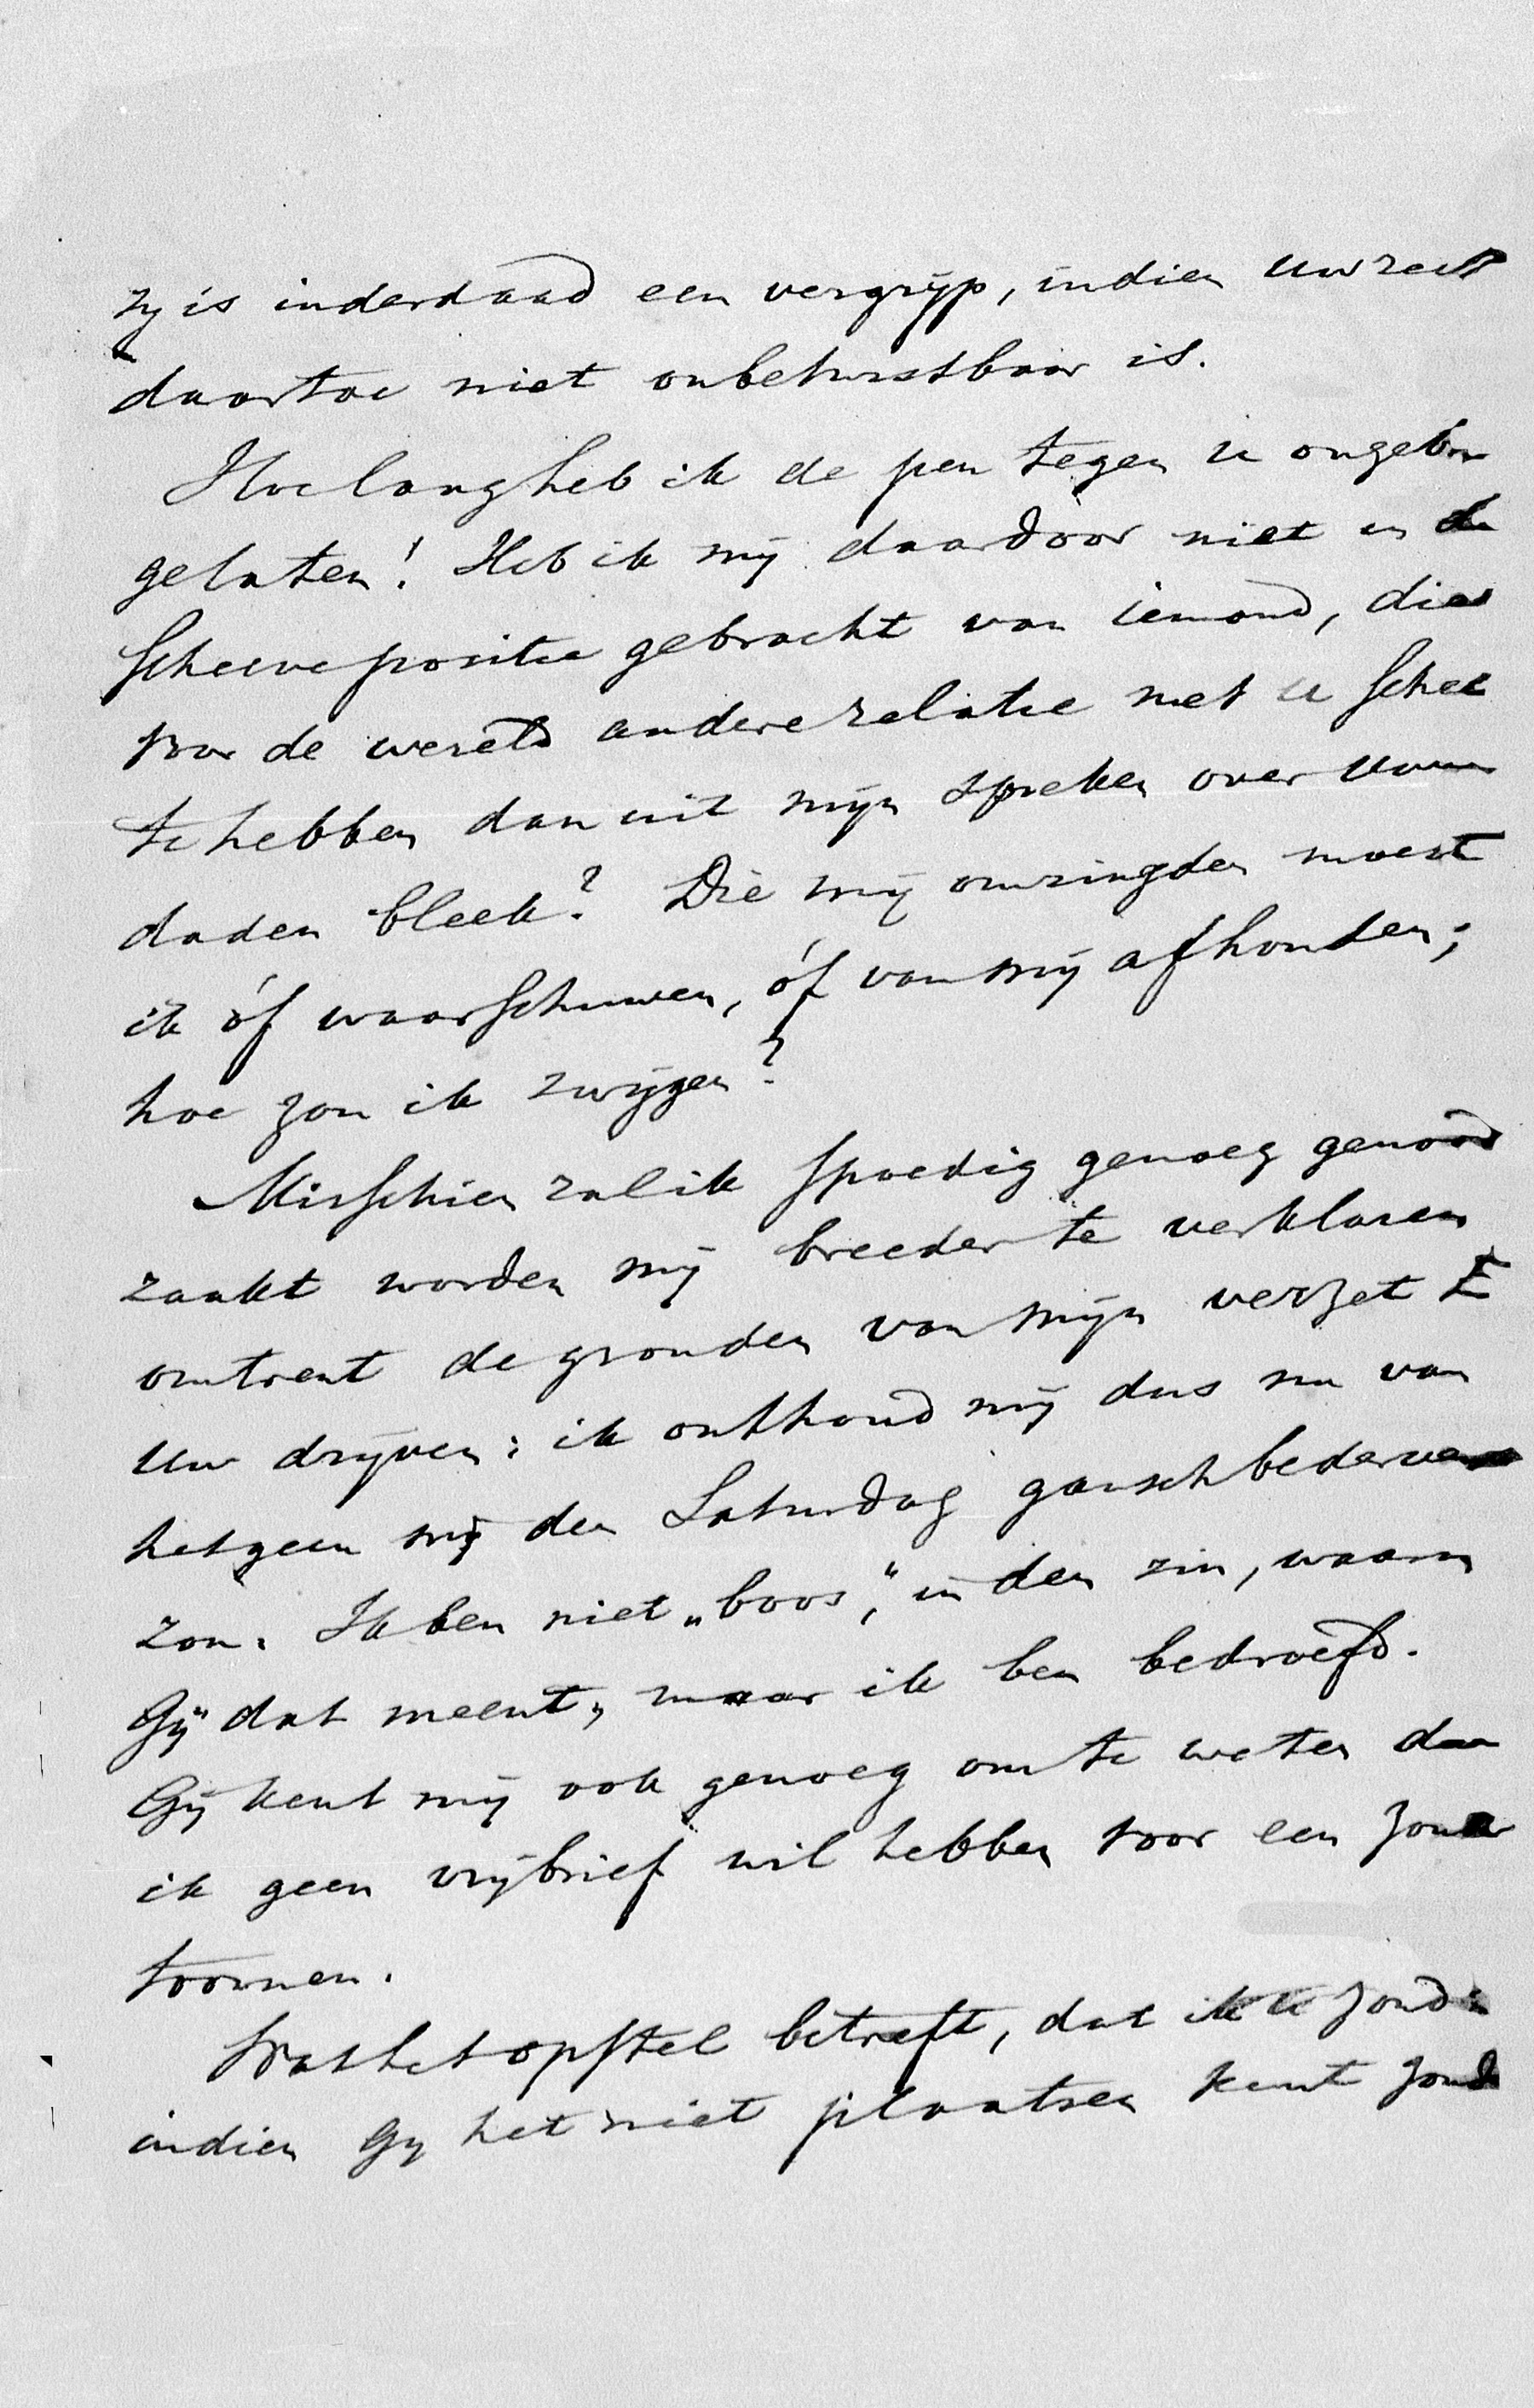 zij is inderdaad een vergrijp, indien uw recht
daartoe niet onbetwistbaar is.
Hoe lang heb ik de pen tegen u ongebr
gelaten! Heb ik mij daardoor niet in de
scheeve positie gebracht van iemand, die
voor de wereld andere relatie met u schee
te hebben dan uit mijn spreken over uwe
daden bleek? Die mij omringden moest
ik óf waarschuwen, óf van mij afhouden;
hoe zou ik zwijgen?
Misschien zal ik spoedig genoeg genood
zaakt worden mij breeder te verklaren
omtrent de gronden van mijn verzet t
uw drijven: ik onthoud mij dus nu van
hetgeen mij den Saturdag gansch bederven
zou. Ik ben niet „boos”, in den zin, waarin
Gij dat meent, maar ik ben bedroefd.
Gij kent mij ook genoeg om te weten dat
ik geen vrijbrief wil hebben voor een
toornen.
Wat het opstel betreft, dat ik u zond
indien Gij het niet plaatsen kunt